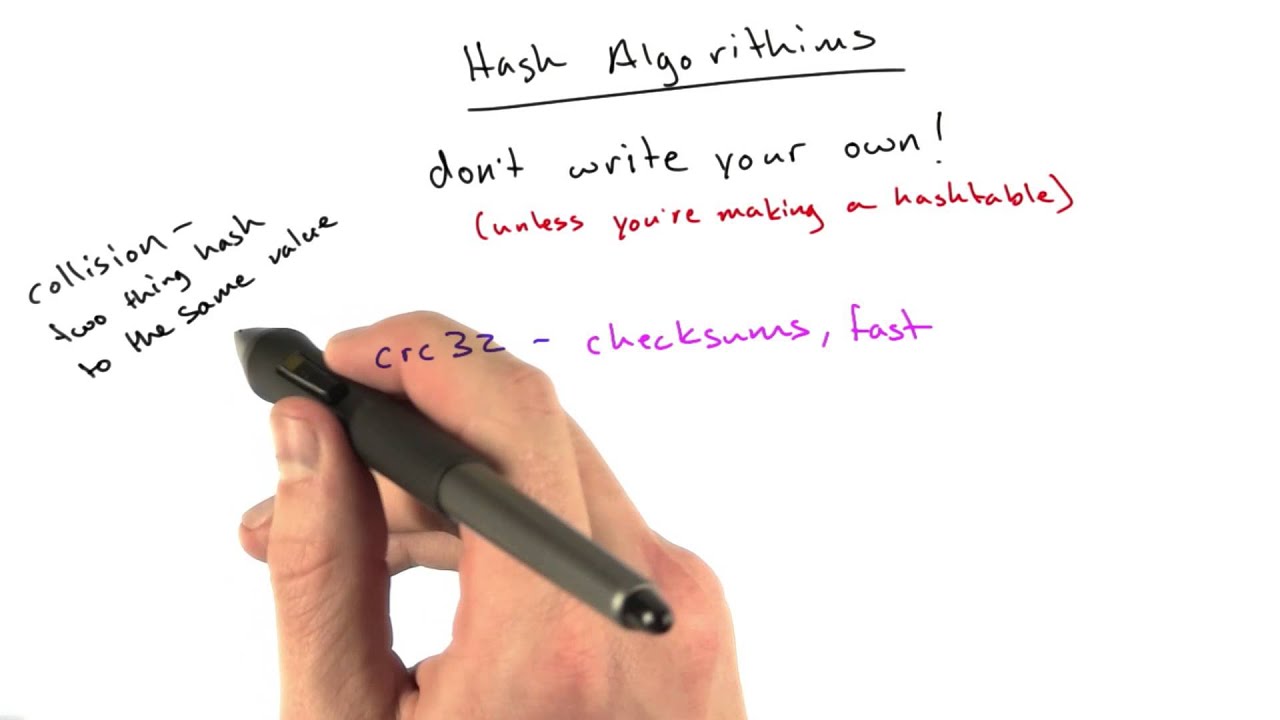 Hash Algorithims
don't write your own!
(unless you're making a hashtable)
collision -
two thing hash
to the same value
crc32 - checksums, fast